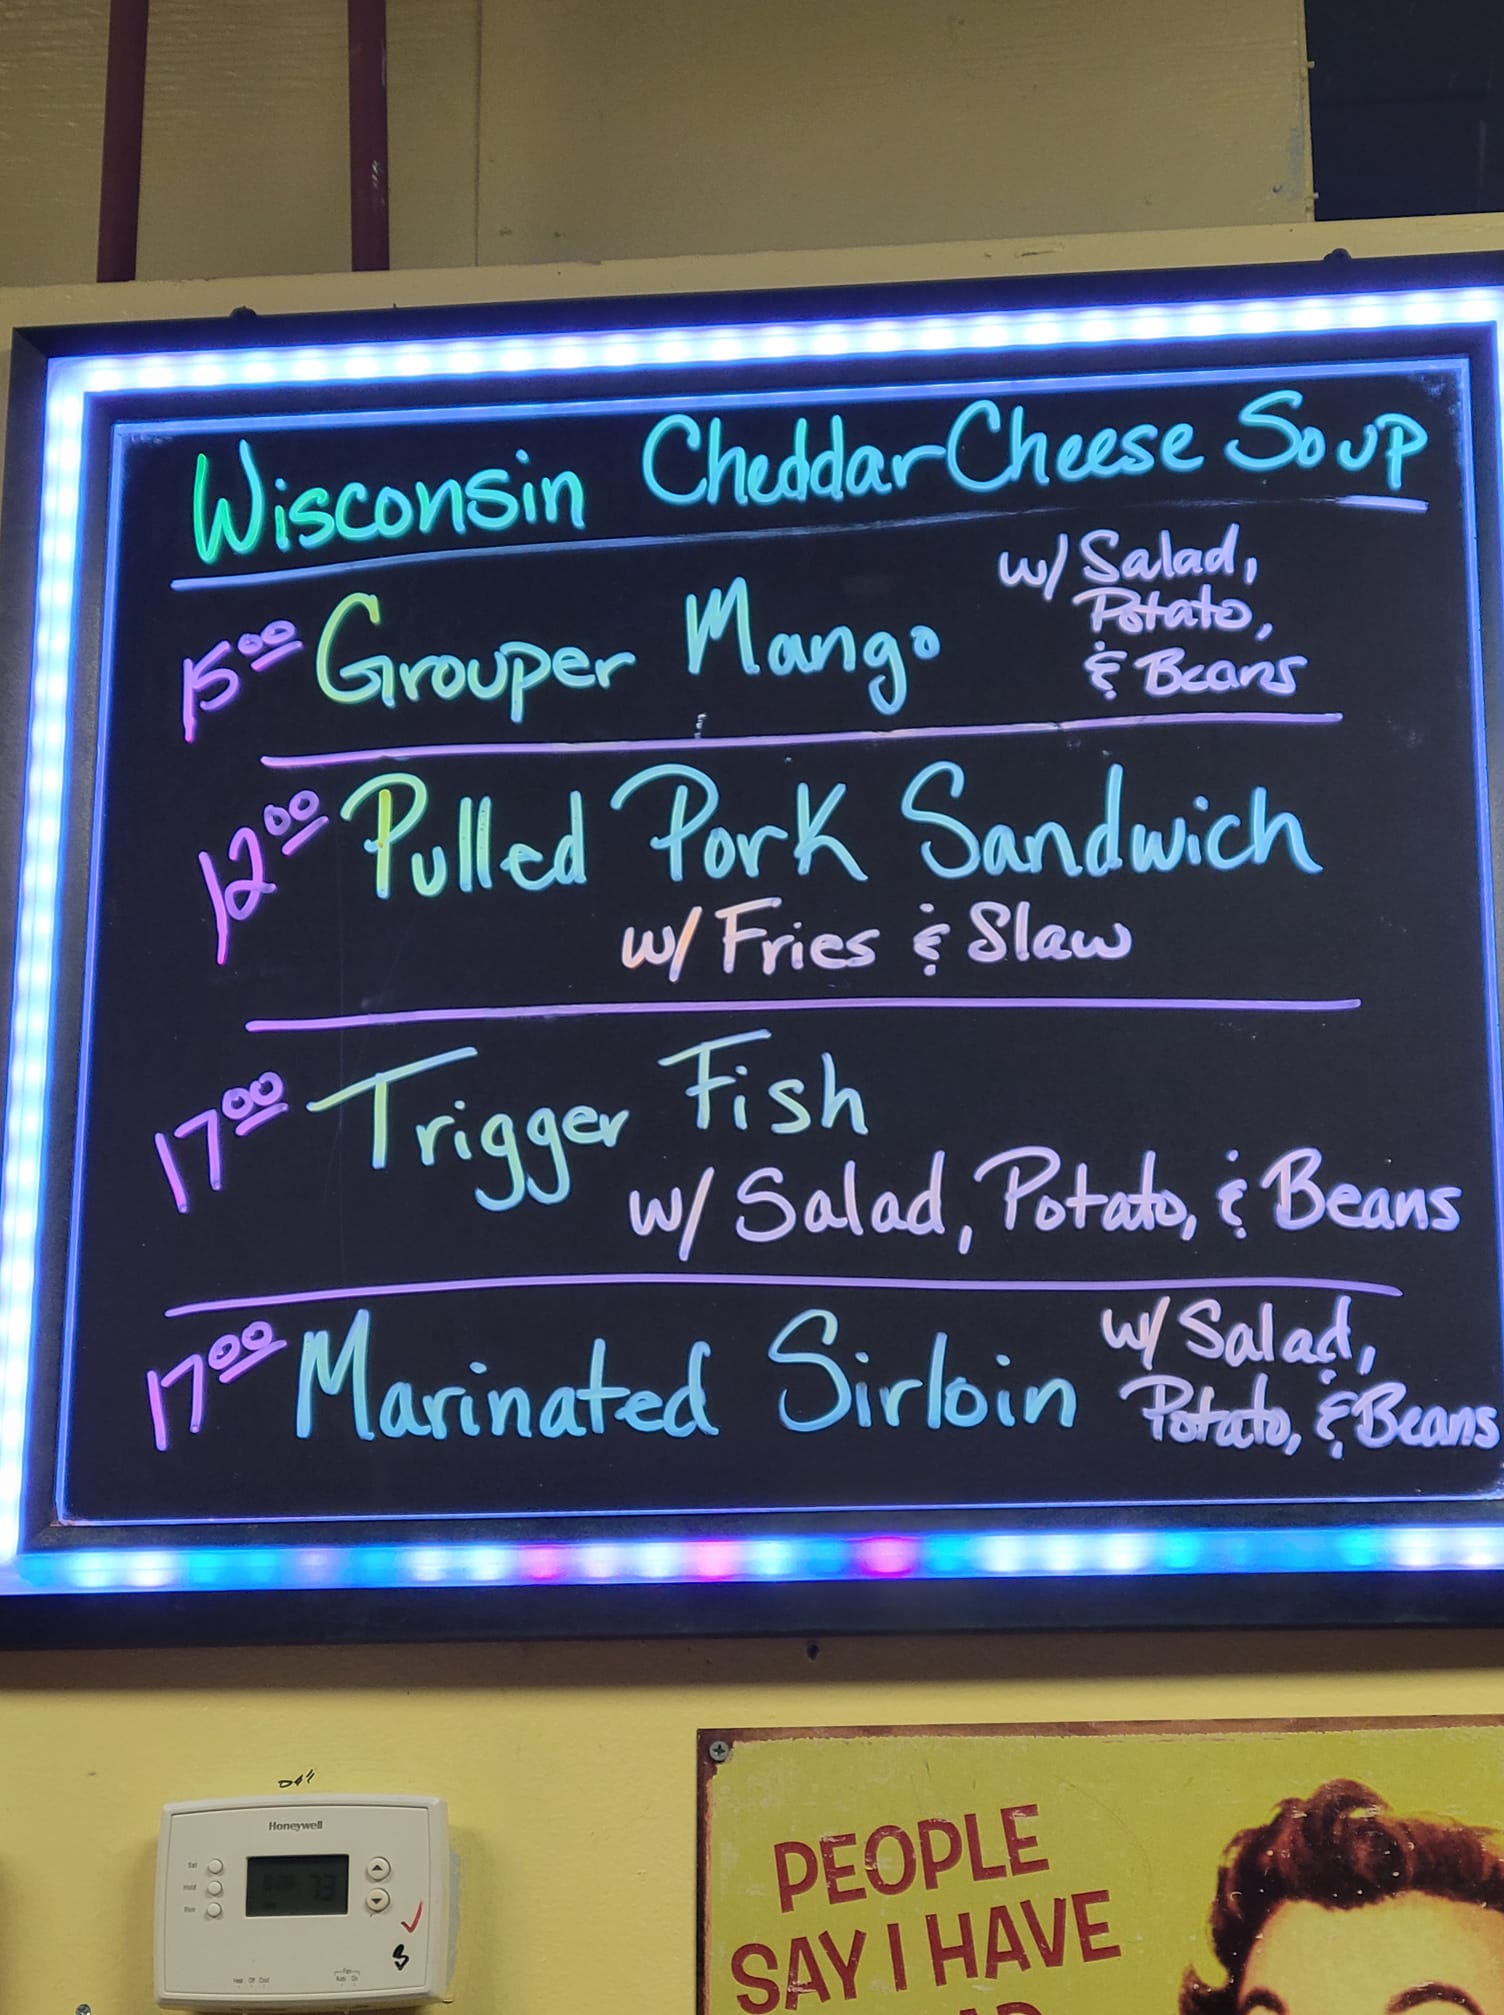 Wisconsin Cheddar Cheese Soup
15.00 Grouper Mango w/ Salad,
Potato,
& Beans
12.00 Pulled Pork Sandwich
w/ Fries & Slaw
17.00 Trigger Fish
w/ Salad, Potato, & Beans
17.00 Marinated Sirloin w/ Salad,
Potato, & Beans
Honeywell
Set
Hold
Run
73
Heat Off Cool
Fan
Auto On
PEOPLE
SAY I HAVE